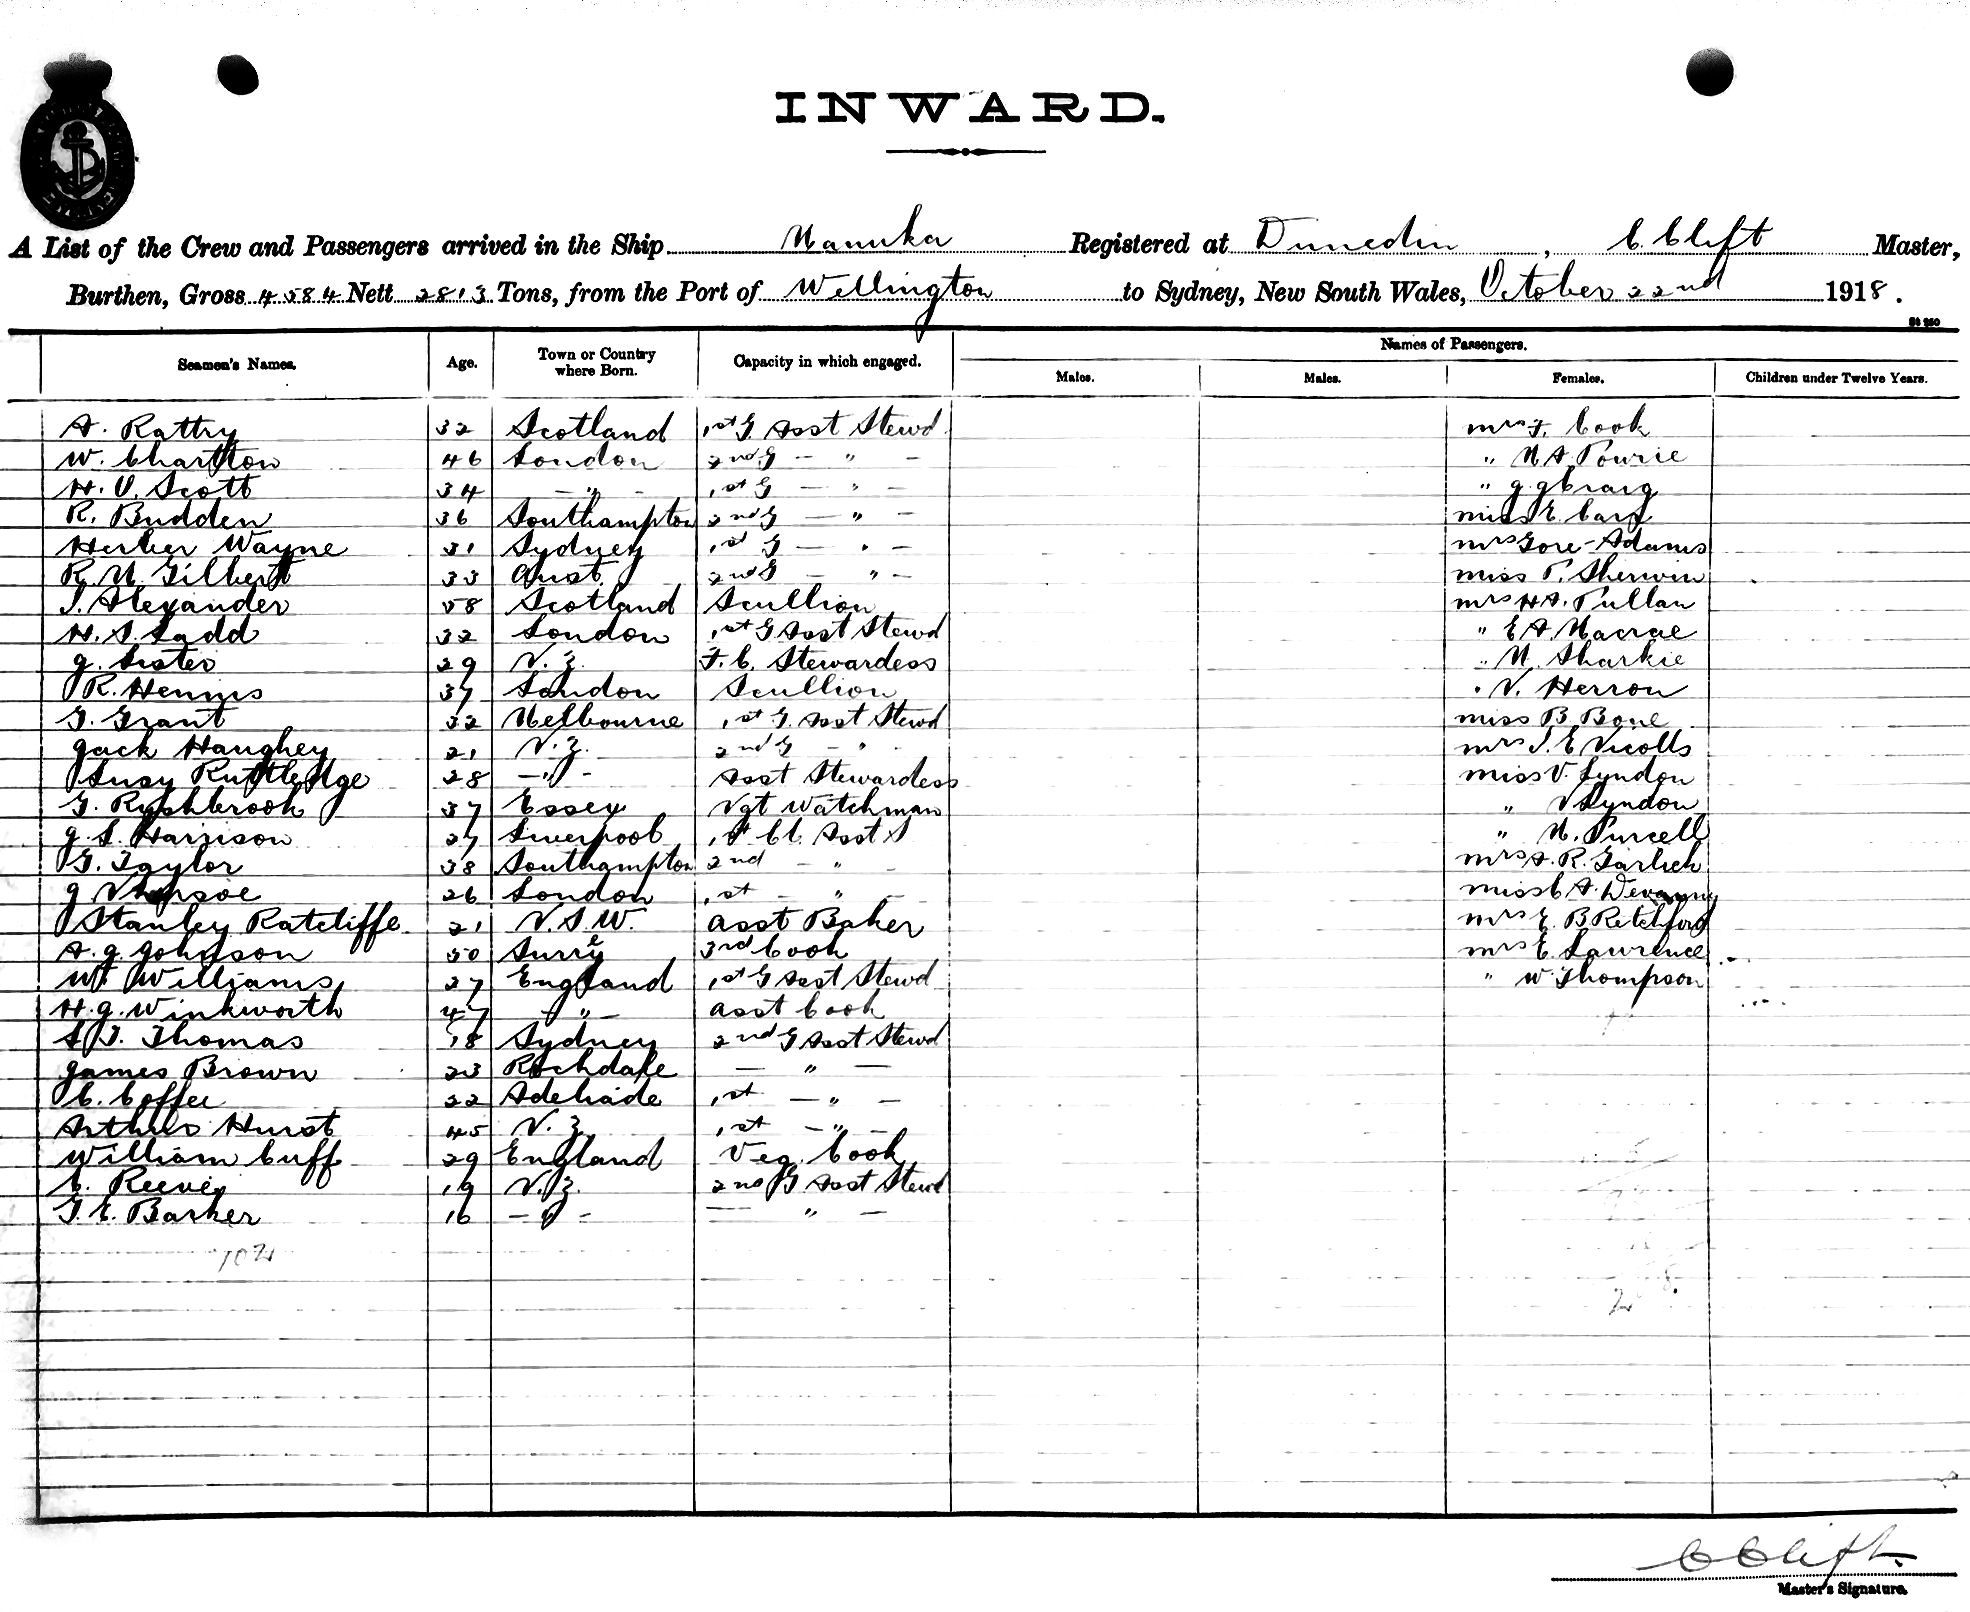 INWARD.
A List of the Crew and Passengers arrived in the Ship Manuka Registered at Dunedin, C. Clift Master,
Burthen, Gross 4584 Nett 2813 Tons, from the Port of Wellington to Sydney, New South Wales, October 22nd 1918.
Names of Passengers.
Seamen's Names. Age. Town or Country where Born. Capacity in which engaged. Males. Males. Females. Children under Twelve Years.
A. Rattry 32 Scotland 1st G Asst Stewd Mrs F. Cook
W. Charlton 46 London 2nd G — " — " M A Pourie
H. V. Scott 34 — " — 1st G — " — " J. J Craig
R. Budden 36 Southampton 2nd G — " — Miss E. Carg
Herber Wayne 31 Sydney 1st G — " — Mrs Gore-Adams
R. M. Gilbert 33 Aust. 2nd G — " — Miss P. Sherwin
J. Alexander 58 Scotland Scullion Mrs H A. Pullan
H. S. Ladd 32 London 1st G Asst Stewd " E A. Macrae
J. Lister 29 N. Z. F. C. Stewardess " M. Sharkie
R. Hennis 37 London Scullion " N. Herron
G. Grant 32 Melbourne 1st G. Asst Stewd Miss B. Bone
Jack Haughey 21 N. Z. 2nd G - " Mrs J. E Nicolls
Susy Ruttledge 28 — " - Asst Stewardess Miss V. Lyndon
G. Rushbrook 37 Essex Ngt Watchman " N Lyndon
J. S. Harrison 27 Liverpool 1st Cl. Asst S " M. Purcell
G. Taylor 38 Southampton 2nd - " Mrs A. R. Garlick
J 26 London 1st - " - Miss C A. Devanny
Stanley Ratcliffe 21 N. S. W. Asst Baker Mrs E. B Retchford
A. J. Johnson 50 Surre 3rd Cook Mrs E. Lawrence
W. Williams 27 England 1st G Asst Stewd " W Thompson
H. J. Winkworth 47 — " — Asst Cook
S J. Thomas 18 Sydney 2nd G Asst Stewd
James Brown 23 Rochdale — " —
C. Coffee 22 Adelaide 1st — " —
Arthur Hurst 45 N. Z. 1st — " —
William Cuff 29 England Veg. Cook
C. Reeves 19 N. Z. 2nd G Asst Stewd
J. E. Barker 16 — " - — " —
102
C Clift.
Master's Signature.